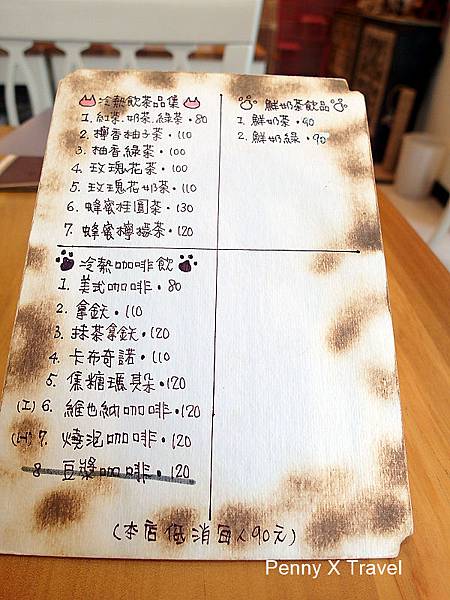 冷熱飲茶品集
1. 紅茶.奶茶.綠茶・80
2. 檸香柚子茶・110
3. 柚香綠茶・100
4. 玫瑰花茶・100
5. 玫瑰花奶茶・110
6. 蜂蜜桂圓茶・130
7. 蜂蜜檸檬茶・120
鮮奶茶飲品
1. 鮮奶茶・90
2. 鮮奶綠・90
冷熱咖啡飲
1. 美式咖啡・80
2. 拿鈥・110
3. 抹茶拿鈥・120
4. 卡布奇諾・110
5. 焦糖瑪其朵・120
(I) 6. 維也納咖啡・120
(H) 7. 燒泡咖啡・120
8 豆漿咖啡・120
(本店低消每人90元)
Penny X Travel